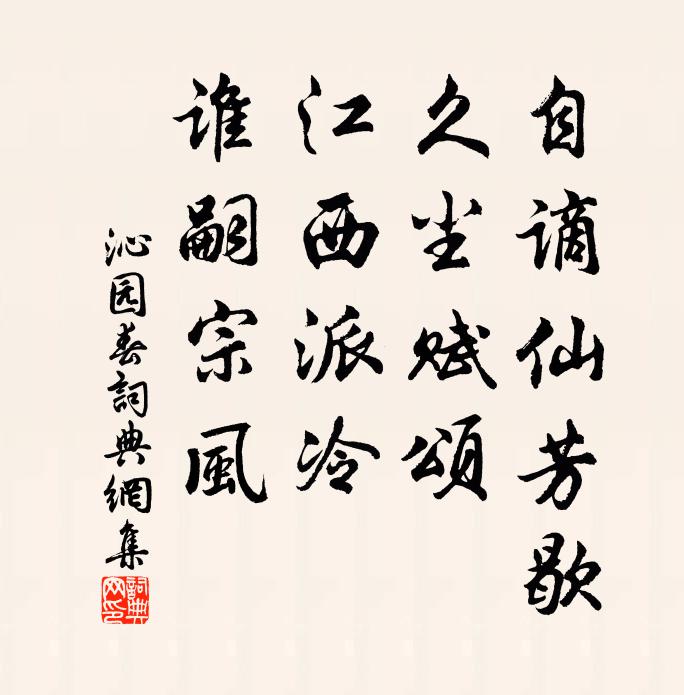 自謫仙芳歇
久坐賦頌
江西派冷
誰嗣宗風
沁园春詞典網集
詞典网印